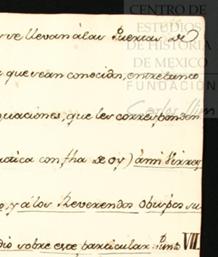 CENTRO DE
ESTUDIOS
DE HISTORIA
DE MEXICO
FUNDACIÓN
Carlos Slim
se llevan a las Puertas de
que sean conocidas, entretanto
quaciones, que les correspondan
con fha de oy) á mi Virrey
y á los Reverendos Obispos su
dio sobre este particular. Punto VII